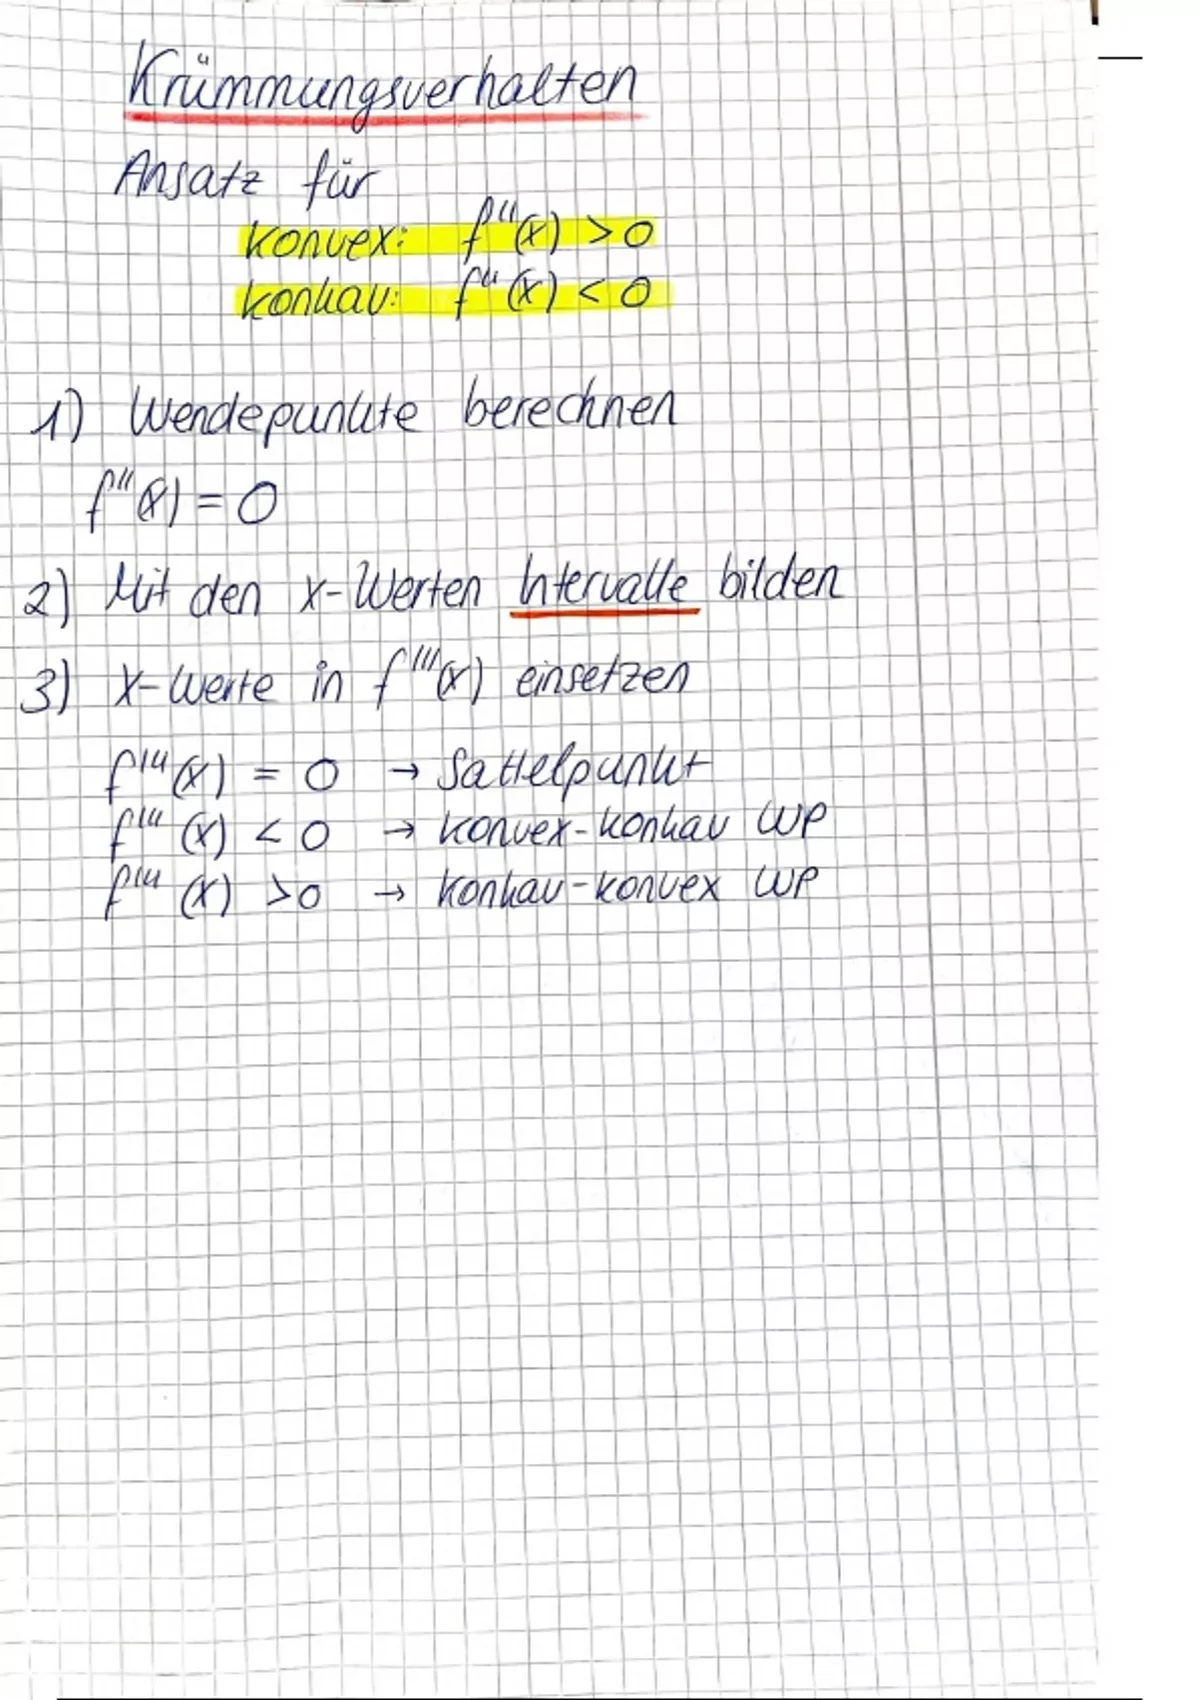 Krümmungsverhalten
Ansatz für
konvex: f''(x) > 0
konkav: f''(x) < 0
1) Wendepunkte berechnen
f''(x) = 0
2) Mit den x-Werten Intervalle bilden
3) X-Werte in f'''(x) einsetzen
f'''(x) = 0 → Sattelpunkt
f'''(x) < 0 → konvex-konkav WP
f'''(x) >0 → konkav-konvex WP